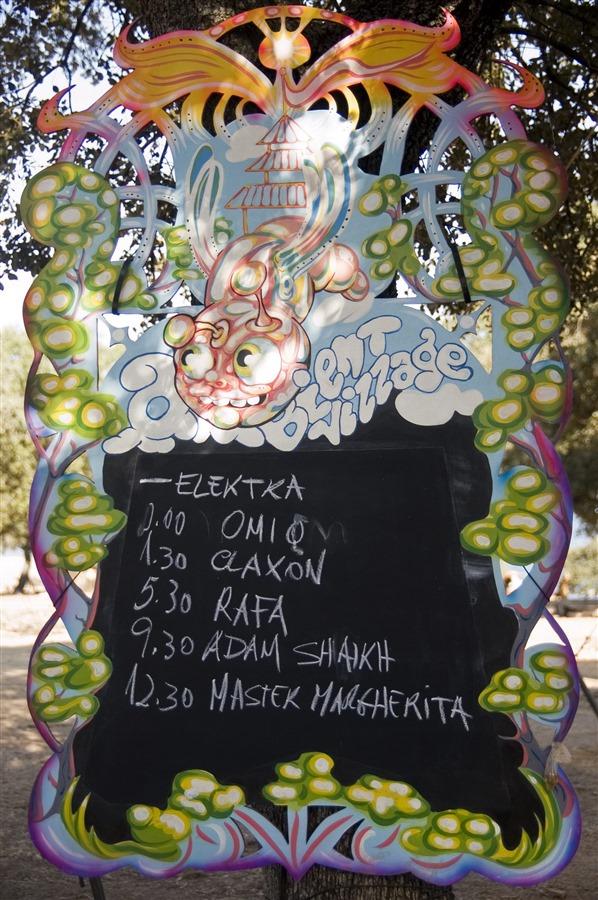 ambient
village
— ELEKTRA
0.00 OMIQ
1.30 CLAXON
5.30 RAFA
9.30 ADAM SHAIKH
12.30 MASTER MARGHERITA